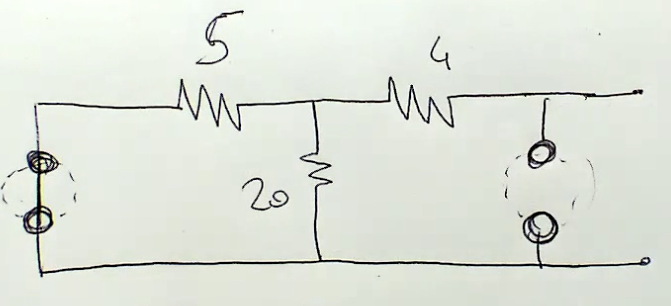 5
4
20